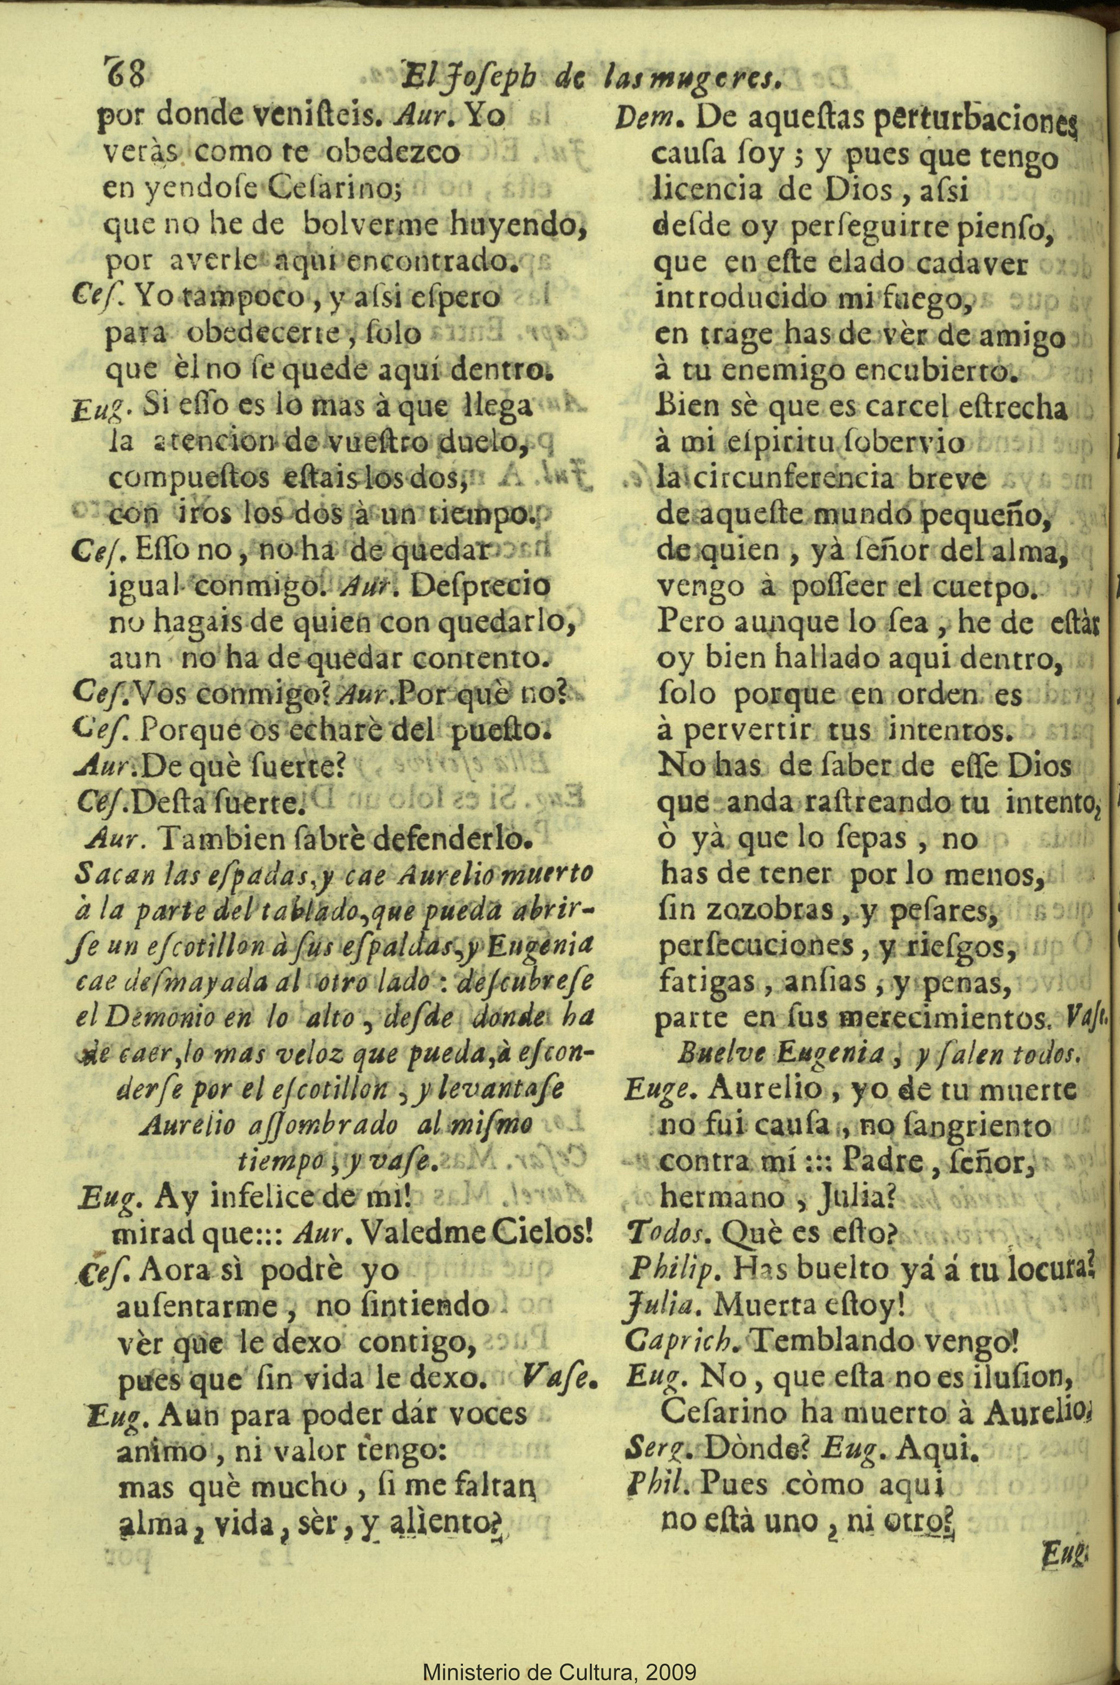 68
El Joſeph de las mugeres.
por donde veniſteis. Aur. Yo
veràs como te obedezco
en yendoſe Ceſarino;
que no he de bolverme huyendo,
por averle aqui encontrado.
Ceſ. Yo tampoco, y aſsi eſpero
para obedecerte, ſolo
que èl no ſe quede aquí dentro.
Eug. Si eſſo es lo mas à que llega
la atencion de vueſtro duelo,
compueſtos eſtais los dos,
con iros los dos à un tiempo.
Ceſ. Eſſo no, no ha de quedar
igual conmigo. Aur. Deſprecio
no hagais de quien con quedarlo,
aun no ha de quedar contento.
Ceſ. Vos conmigo? Aur. Por què no?
Ceſ. Porque os echarè del pueſto.
Aur. De què ſuerte?
Ceſ. Deſta ſuerte.
Aur. Tambien ſabrè defenderlo.
Sacan las eſpadas, y cae Aurelio muerto
à la parte del tablado, que pueda abrir-
ſe un eſcotillon à ſus eſpaldas, y Eugenia
cae deſmayada al otro lado: deſcubreſe
el Demonio en lo alto, deſde donde ha
de caer, lo mas veloz que pueda, à eſcon-
derſe por el eſcotillon, y levantaſe
Aurelio aſſombrado al miſmo
tiempo, y vaſe.
Eug. Ay infelice de mi!
mirad que::: Aur. Valedme Cielos!
Ceſ. Aora sì podrè yo
auſentarme, no ſintiendo
vèr que le dexo contigo,
pues que ſin vida le dexo. Vaſe.
Eug. Aun para poder dár voces
animo, ni valor tengo:
mas què mucho, ſi me faltan
alma, vida, sèr, y aliento?
Dem. De aqueſtas perturbaciones
cauſa ſoy; y pues que tengo
licencia de Dios, aſsi
deſde oy perſeguirte pienſo,
que en eſte elado cadaver
introducido mi fuego,
en trage has de vèr de amigo
à tu enemigo encubierto.
Bien sè que es carcel eſtrecha
à mi eſpiritu ſobervio
la circunferencia breve
de aqueſte mundo pequeño,
de quien, yà ſeñor del alma,
vengo à poſſeer el cuerpo.
Pero aunque lo ſea, he de eſtàr
oy bien hallado aqui dentro,
ſolo porque en orden es
à pervertir tus intentos.
No has de ſaber de eſſe Dios
que anda raſtreando tu intento,
ò yà que lo ſepas, no
has de tener por lo menos,
ſin zozobras, y peſares,
perſecuciones, y rieſgos,
fatigas, anſias, y penas,
parte en ſus merecimientos. Vaſe.
Buelve Eugenia, y ſalen todos.
Euge. Aurelio, yo de tu muerte
no fui cauſa, no ſangriento
contra mí::: Padre, ſeñor,
hermano, Julia?
Todos. Què es eſto?
Philip. Has buelto yá á tu locura?
Julia. Muerta eſtoy!
Caprich. Temblando vengo!
Eug. No, que eſta no es iluſion,
Ceſarino ha muerto à Aurelio.
Serg. Dònde? Eug. Aqui.
Phil. Pues còmo aqui
no eſtà uno, ni otro?
Eug.
Ministerio de Cultura, 2009